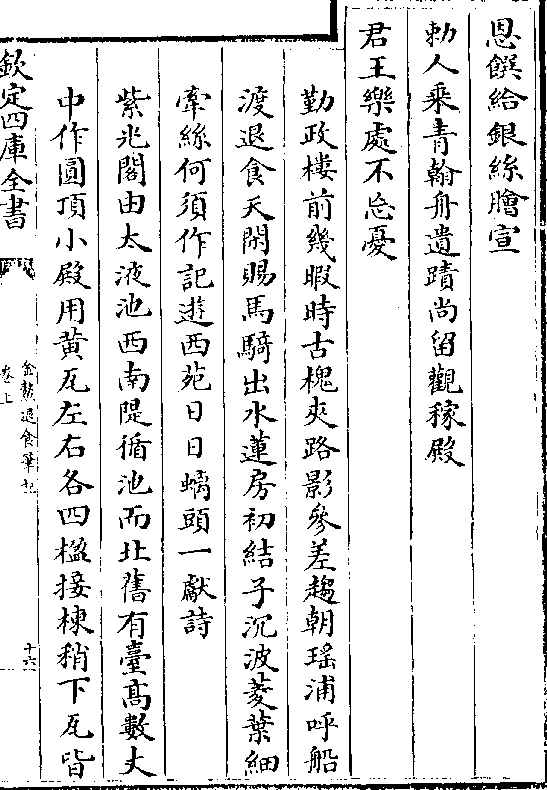 恩饌給銀絲膾宣
勅人乘青翰舟遺蹟尚留觀稼殿
君王樂處不忘憂
勤政樓前幾暇時古槐夾路影參差趨朝瑤浦呼船
渡退食天閑賜馬騎出水蓮房初結子沉波菱葉細
牽絲何須作記遊西苑日日螭頭一獻詩
紫光閣由太液池西南隄循池而北舊有臺高數丈
中作圓頂小殿用黃瓦左右各四楹接棟稍下瓦皆
欽定四庫全書
金鰲退食筆記
卷上
十六